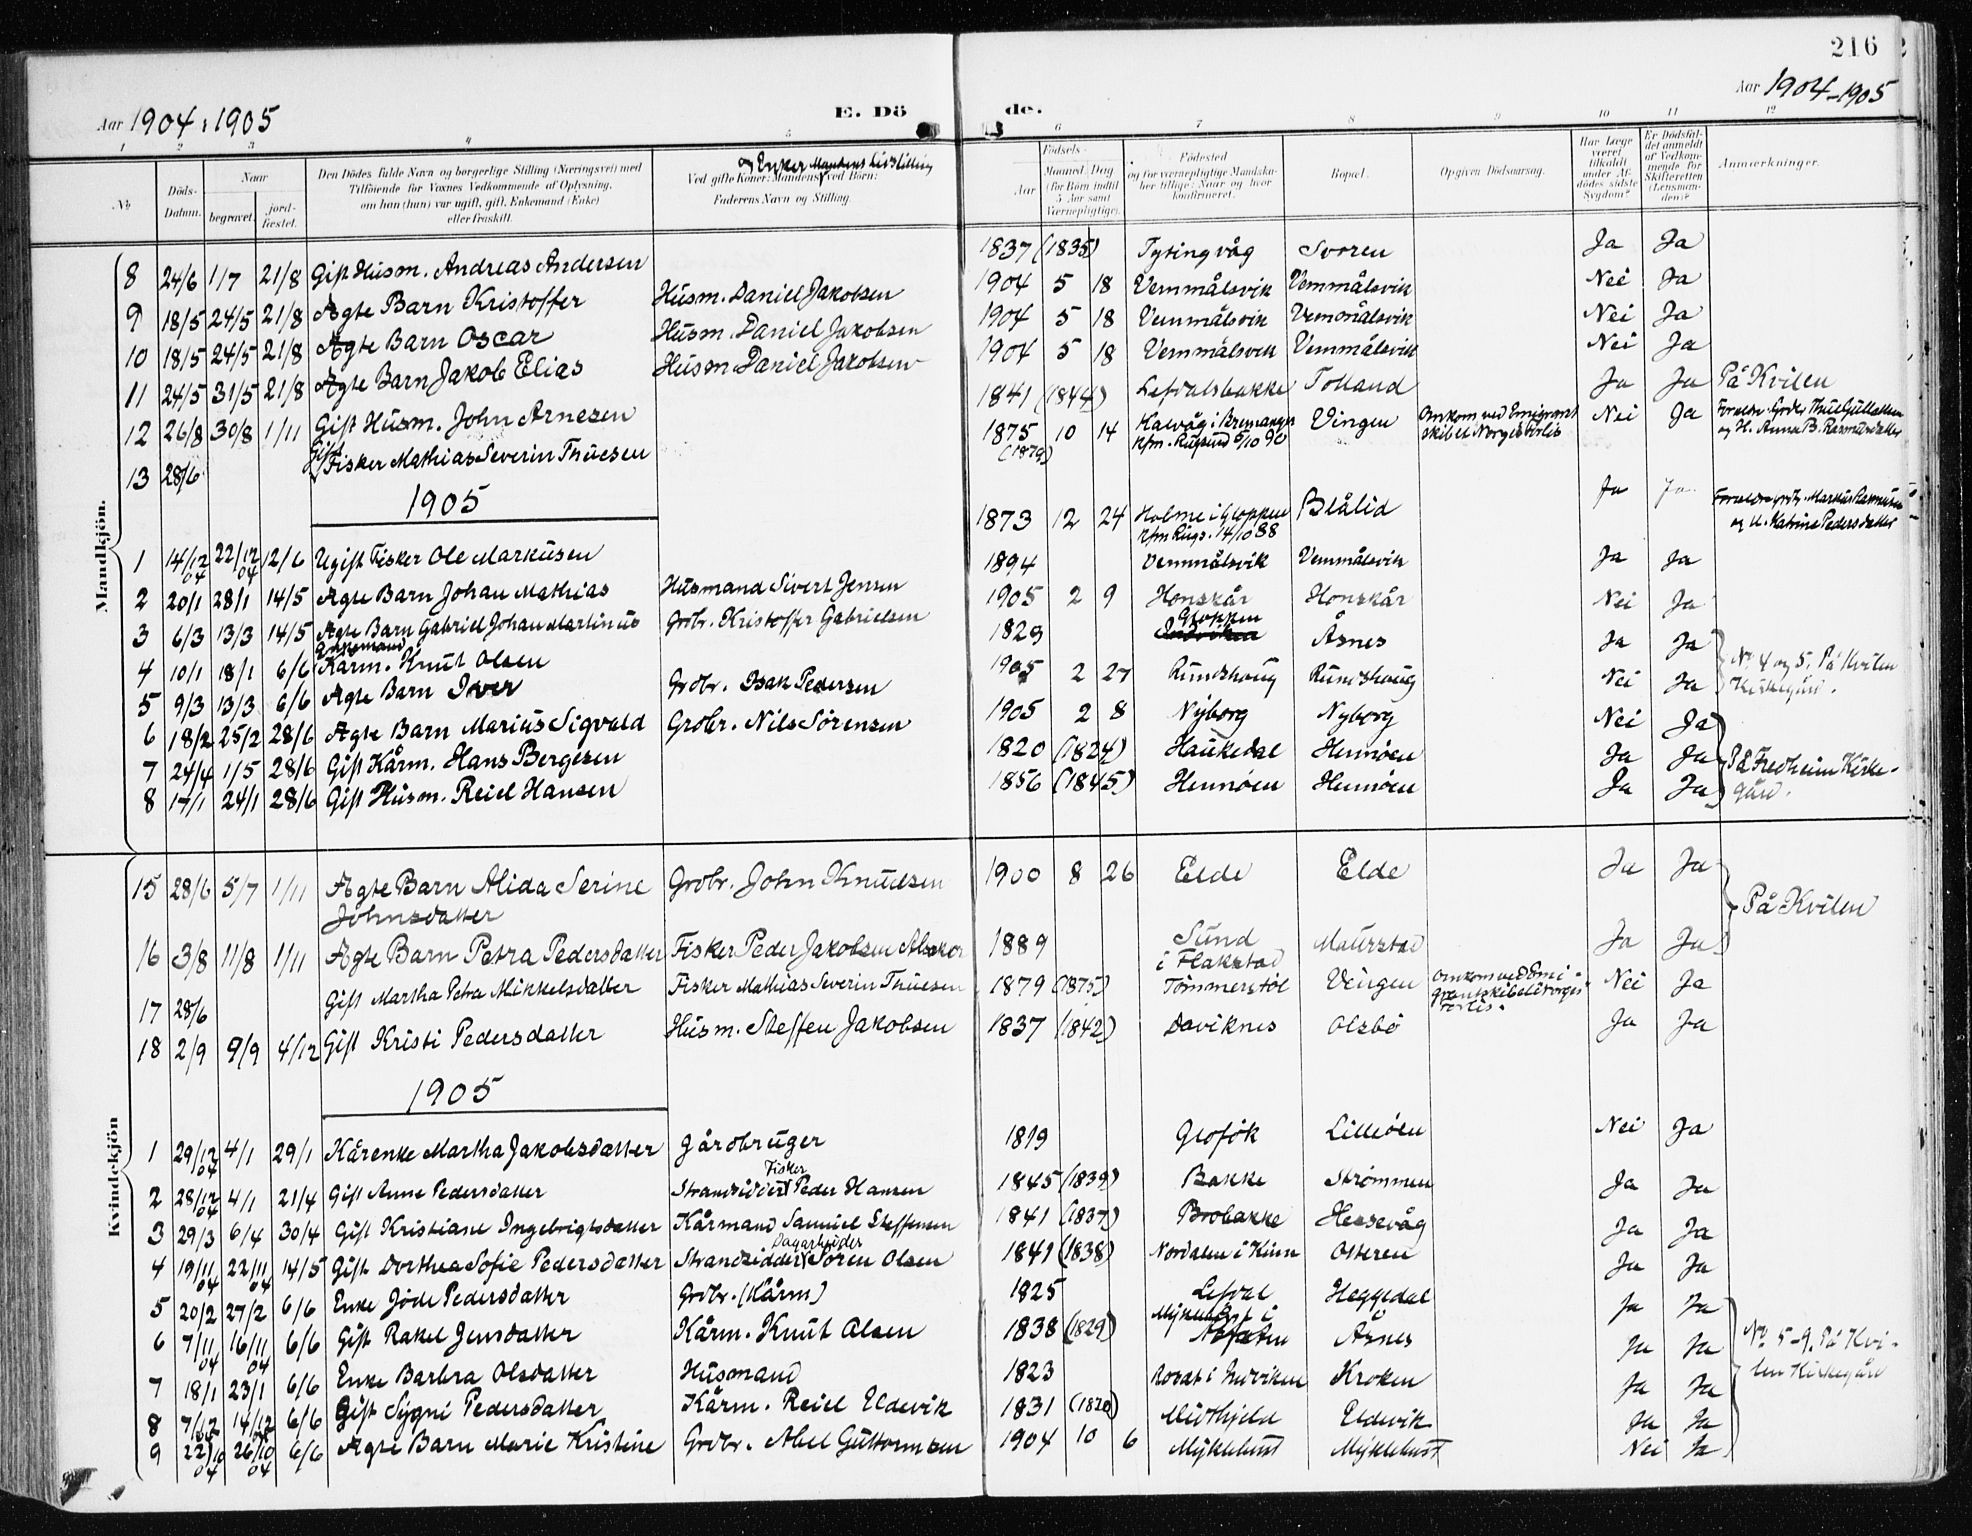 216
Aar 1904 : 1905
E. Dö de.
Aar 1904-1905
1 2 3 4 5 6 7 8 9 10 11 12
No
Döds-Datum.
Naar
begravet.
jord-fæstet.
Den Dödes fulde Navn og borgerlige Stilling (Næringsvei) med
Tilföiende for Voxnes Vedkommende af Oplysning,
om han (hun) var ugift, gift, Enkemand (Enke)
eller fraskilt.
og Enker Mandens Livsstilling
Ved gifte Koner: Mandens, ved Börn:
Faderens Navn og Stilling.
Födsels-
Aar
Maaned, Dag
(for Börn indtil
5 Aar samt
Værnepligtige).
Födested
og for værnepligtige Mandska-
ber tillige: Naar og hvor
konfirmeret.
Bopæl.
Opgiven Dödsaarsag.
Har Læge
været
tilkaldt
under Af-
dödes sidste
Sygdom?
Er Dödsfal-
det anmeldt
af Vedkom-
mende for
Skifteretten
(Lensman-
den)?
Anmærkninger.
Mandkjön.
8 24/6 1/7 21/8 Gift Husm. Andreas Andersen 1837 (1835) Tytingvåg Svoren Ja Ja
9 18/5 24/5 21/8 Ægte Barn Kristoffer Husm. Daniel Jakobsen 1904 5 18 Vemmålsvik Vemmålsvik Nei Ja
10 18/5 24/5 21/8 Ægte Barn Oscar Husm. Daniel Jakobsen 1904 5 18 Vemmålsvik Vemmålsvik Nei Ja
11 24/5 31/5 21/8 Ægte Barn Jakob Elias Husm. Daniel Jakobsen 1904 5 18 Vemmålsvik Vemmålsvik Nei Ja
12 26/8 30/8 1/11 Gift Husm. John Arnesen 1841 (1844) Lefdalsbakke Totland Ja Ja På Kvilen
13 28/6 Gift Fisker Mathias Severin Thuesen 1875 (1879) 10 14 Kalvåg i Bremanger Kfm. Rugsund 5/10 90 Vingen Omkom ved Emigrant skibet Norges forlis Nei Ja Forældre: Grdbr. Thue Guttormsen og H. Anna B. Rasmusdatter
1905
1 14/12 04 22/12 04 12/6 Ugift Fisker Ole Markusen 1873 12 24 Holme i Gloppen Kfm Rugs. 14/10 88 Blålid Ja Ja Forældre grdbr. Markus Rasmusen og H. Katrine Pedersdatter
2 20/1 28/1 14/5 Ægte Barn Johan Mathias Husmand Sivert Jensen 1894 Vemmålsvik Vemmålsvik Ja Ja
3 6/3 13/3 14/5 Ægte Barn Gabriel Johan Martinus Grdbr. Kristoffer Gabrielsen 1905 2 9 Honskår Honskår Nei Ja
4 10/1 18/1 6/6 Enkemand Kårm. Knut Olsen 1829 Gloppen Åsnes Ja Ja
5 9/3 13/3 6/6 Ægte Barn Iver Grdbr. Isak Pedersen 1905 2 27 Rundshoug Rundshoug Nei Ja
No 4 og 5, På Kvilen Kirkegård.
6 18/2 25/2 28/6 Ægte Barn Marius Sigvald Grdbr. Nils Sørensen 1905 2 8 Nyborg Nyborg Nei Ja
7 24/4 1/5 28/6 Gift Kårm. Hans Bergesen 1820 (1824) Haukedal Hennøen Ja Ja
8 17/1 24/1 28/6 Gift Husm. Reiel Hansen 1856 (1845) Hennøen Hennøen Ja Ja
På Fredheim Kirke-gård.
Kvindekjön
15 28/6 5/7 1/11 Ægte Barn Alida Serine Johnsdatter Grdbr. John Knudsen 1900 8 26 Elde Elde Ja Ja
16 3/8 11/8 1/11 Ægte Barn Petra Pedersdatter Fisker Peder Jakobsen 1889 Sund i Flakstad Maurstad Ja Ja
På Kvilen
17 28/6 Gift Martha Petra Mikkelsdatter Fisker Mathias Severin Thuesen 1879 (1875) Tømmerstøl Vingen Omkom ved Emi-grantskibet Norges Forlis. Nei Ja
18 2/9 9/9 4/12 Gift Kristi Pedersdatter Husm. Steffen Jakobsen 1837 (1842) Daviknes Olsbø Ja Ja
1905
1 29/12 04 4/1 29/1 Kårenke Martha Jakobsdatter gårdbruger 1819 Grofok Lilleøen Nei Ja
2 28/12 04 4/1 21/4 Gift Anne Pedersdatter Strandsidder Fisker Peder Hansen 1845 (1839) Bakke Strømmen Ja Ja
3 29/3 6/4 30/4 Gift Kristiane Ingebrigtsdatter Kårmand Samuel Steffensen 1841 (1837) Brobakke Hessevåg Ja Ja
4 19/11 04 22/11 04 14/5 Gift Dorthea Sofie Pedersdatter Strandsidder Dagarbeider Søren Olsen 1841 (1838) Nordalen i Kinn Otteren Ja Ja
5 20/2 27/2 6/6 Enke Jøde Pedersdatter Grdbr. (Kårm) 1825 Lefdal Heggedal Ja Ja
6 7/11 04 16/11 04 6/6 Gift Rakel Jensdatter Kårm. Knut Olsen 1838 (1829) Myklebust i Åsnes Ja Ja
7 18/1 23/1 6/6 Enke Barbra Olsdatter Husmand 1823 i Indviken Kroken Ja Ja
8 7/12 14/12 6/6 Gift Sygni Pedersdatter Kårm. Reiel Eldevik 1831 (1820) Midthjeld Eldevik Ja Ja
9 22/10 04 26/10 04 6/6 Ægte Barn Marie Kristine Grdbr. Abel Guttormsen 1904 10 6 Myklebust Myklebust Nei Ja
No 5-9. På Kvi-len Kirkegård